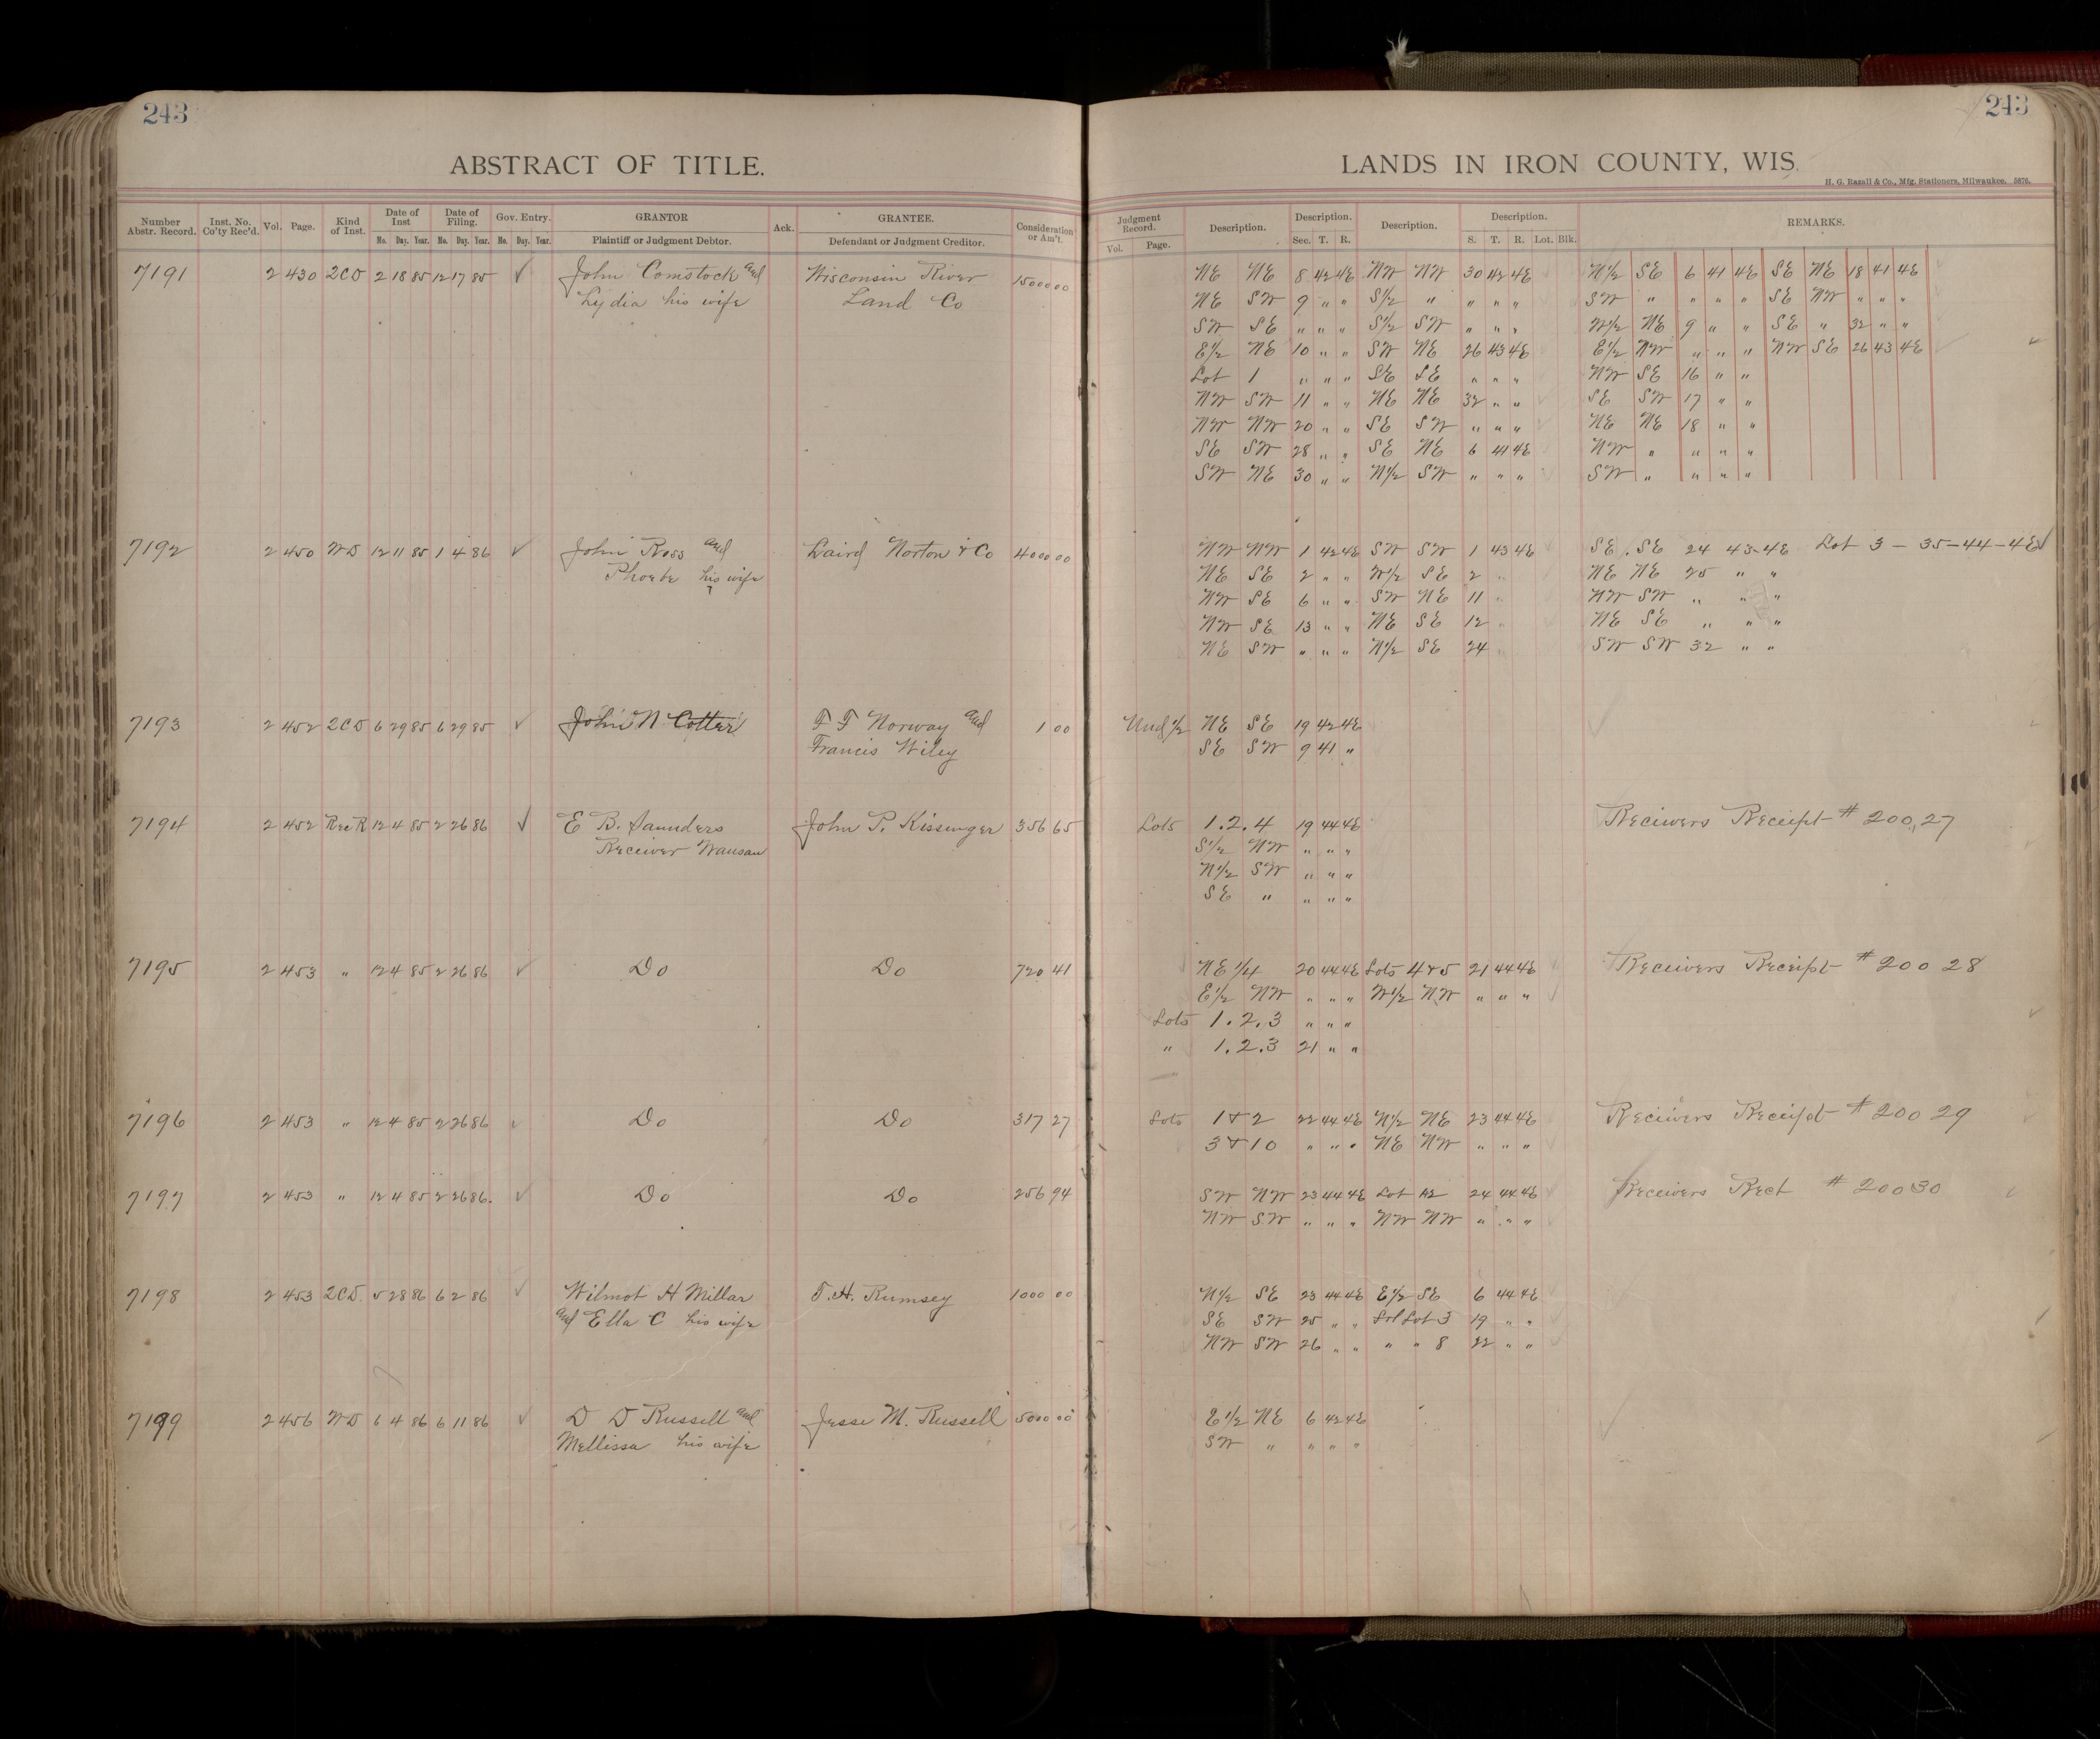 243
243
ABSTRACT OF TITLE.
LANDS IN IRON COUNTY, WIS.
H. G. Razall & Co., Mfg. Stationers, Milwaukee. 5876.
Number Abstr. Record. Inst. No. Co'ty Rec'd. Vol. Page. Kind of Inst. Date of Inst Date of Filing. Gov. Entry. GRANTOR Ack. GRANTEE. Consideration or Am't. Judgment Record. Description. Description. Description. Description. REMARKS.
No. Day. Year. No. Day. Year. No. Day. Year. Plaintiff or Judgment Debtor. Defendant or Judgment Creditor. Vol. Page. Sec. T. R. S. T. R. Lot. Blk.
7191 2 430 2CD 2 18 85 12 17 85 ✓ John Comstock and Wisconsin River 1500000 NE NE 8 42 4E NW NW 30 42 4E N1/2 SE 6 41 4E SE NE 18 41 4E
Lydia his wife Land Co NE SW 9 " " S1/2 " " " " SW " " " " SE NW " " "
SW SE " " " S1/2 SW " " " W1/2 NE 9 " " SE " 32 " "
E1/2 NE 10 " " SW NE 26 43 4E E1/2 NW " " " NW SE 26 43 4E
Lot 1 " " " SE SE " " " NW SE 16 " "
NW SW 11 " " NE NE 32 " " SE SW 17 " "
NW NW 20 " " SE SW " " " NE NE 18 " "
SE SW 28 " " SE NE 6 41 4E NW " " " "
SW NE 30 " " N1/2 SW " " " SW " " " "
7192 2 450 WD 12 11 85 1 4 86 ✓ John Ross and Laird Norton & Co 4000 00 NW NW 1 42 4E SW SW 1 43 4E SE SE 24 43-4E Lot 3 - 35-44-4E
Phoebe his wife NE SE 2 " " W1/2 SE 2 " NE NE 25 " "
NW SE 6 " " SW NE 11 " NW SW " " "
NW SE 13 " " NE SE 12 " NE SE " " "
NE SW " " " N1/2 SE 24 " SW SW 32 " "
7193 2 452 2CD 6 29 85 6 29 85 ✓ John N Cotter F F Norway and 1 00 Und 1/2 NE SE 19 42 4E
Francis Wiley SE SW 9 41 "
7194 2 452 Rec R 12 4 85 2 26 86 ✓ E B. Saunders John P. Kissinger 356 65 Lots 1.2.4 19 44 4E Receivers Receipt # 200,27
Receiver Wausau S1/2 NW " " "
N1/2 SW " " "
SE " " " "
7195 2 453 " 12 4 85 2 26 86 ✓ Do Do 720 41 NE 1/4 20 44 4E Lots 4 & 5 21 44 4E Receivers Receipt # 200 28
E1/2 NW " " " W1/2 NW " " "
Lots 1.2.3 " " "
" 1.2.3 21 " "
7196 2 453 " 12 4 85 2 26 86 ✓ Do Do 317 27 Lots 1 & 2 22 44 4E N1/2 NE 23 44 4E Receivers Receipt # 200 29
3 & 10 " " " NE NW " " "
7197 2 453 " 12 4 85 2 26 86. ✓ Do Do 256 94 SW NW 23 44 4E Lot 24 44 4E Receivers Rect # 20030
NW SW " " " NW NW " " "
7198 2 453 2CD. 5 28 86 6 2 86 ✓ Wilmot H Millar T. H. Rumsey 1000 00 N1/2 SE 23 44 4E E1/2 SE 6 44 4E
and Ella C his wife SE SW 25 " " Lot 3 19 " "
NW SW 26 " " " " 8 22 " "
7199 2 456 WD 6 4 86 6 11 86 ✓ D D Russell and Jesse M. Russell 5000 00 E1/2 NE 6 42 4E
Mellissa his wife SW " " " "